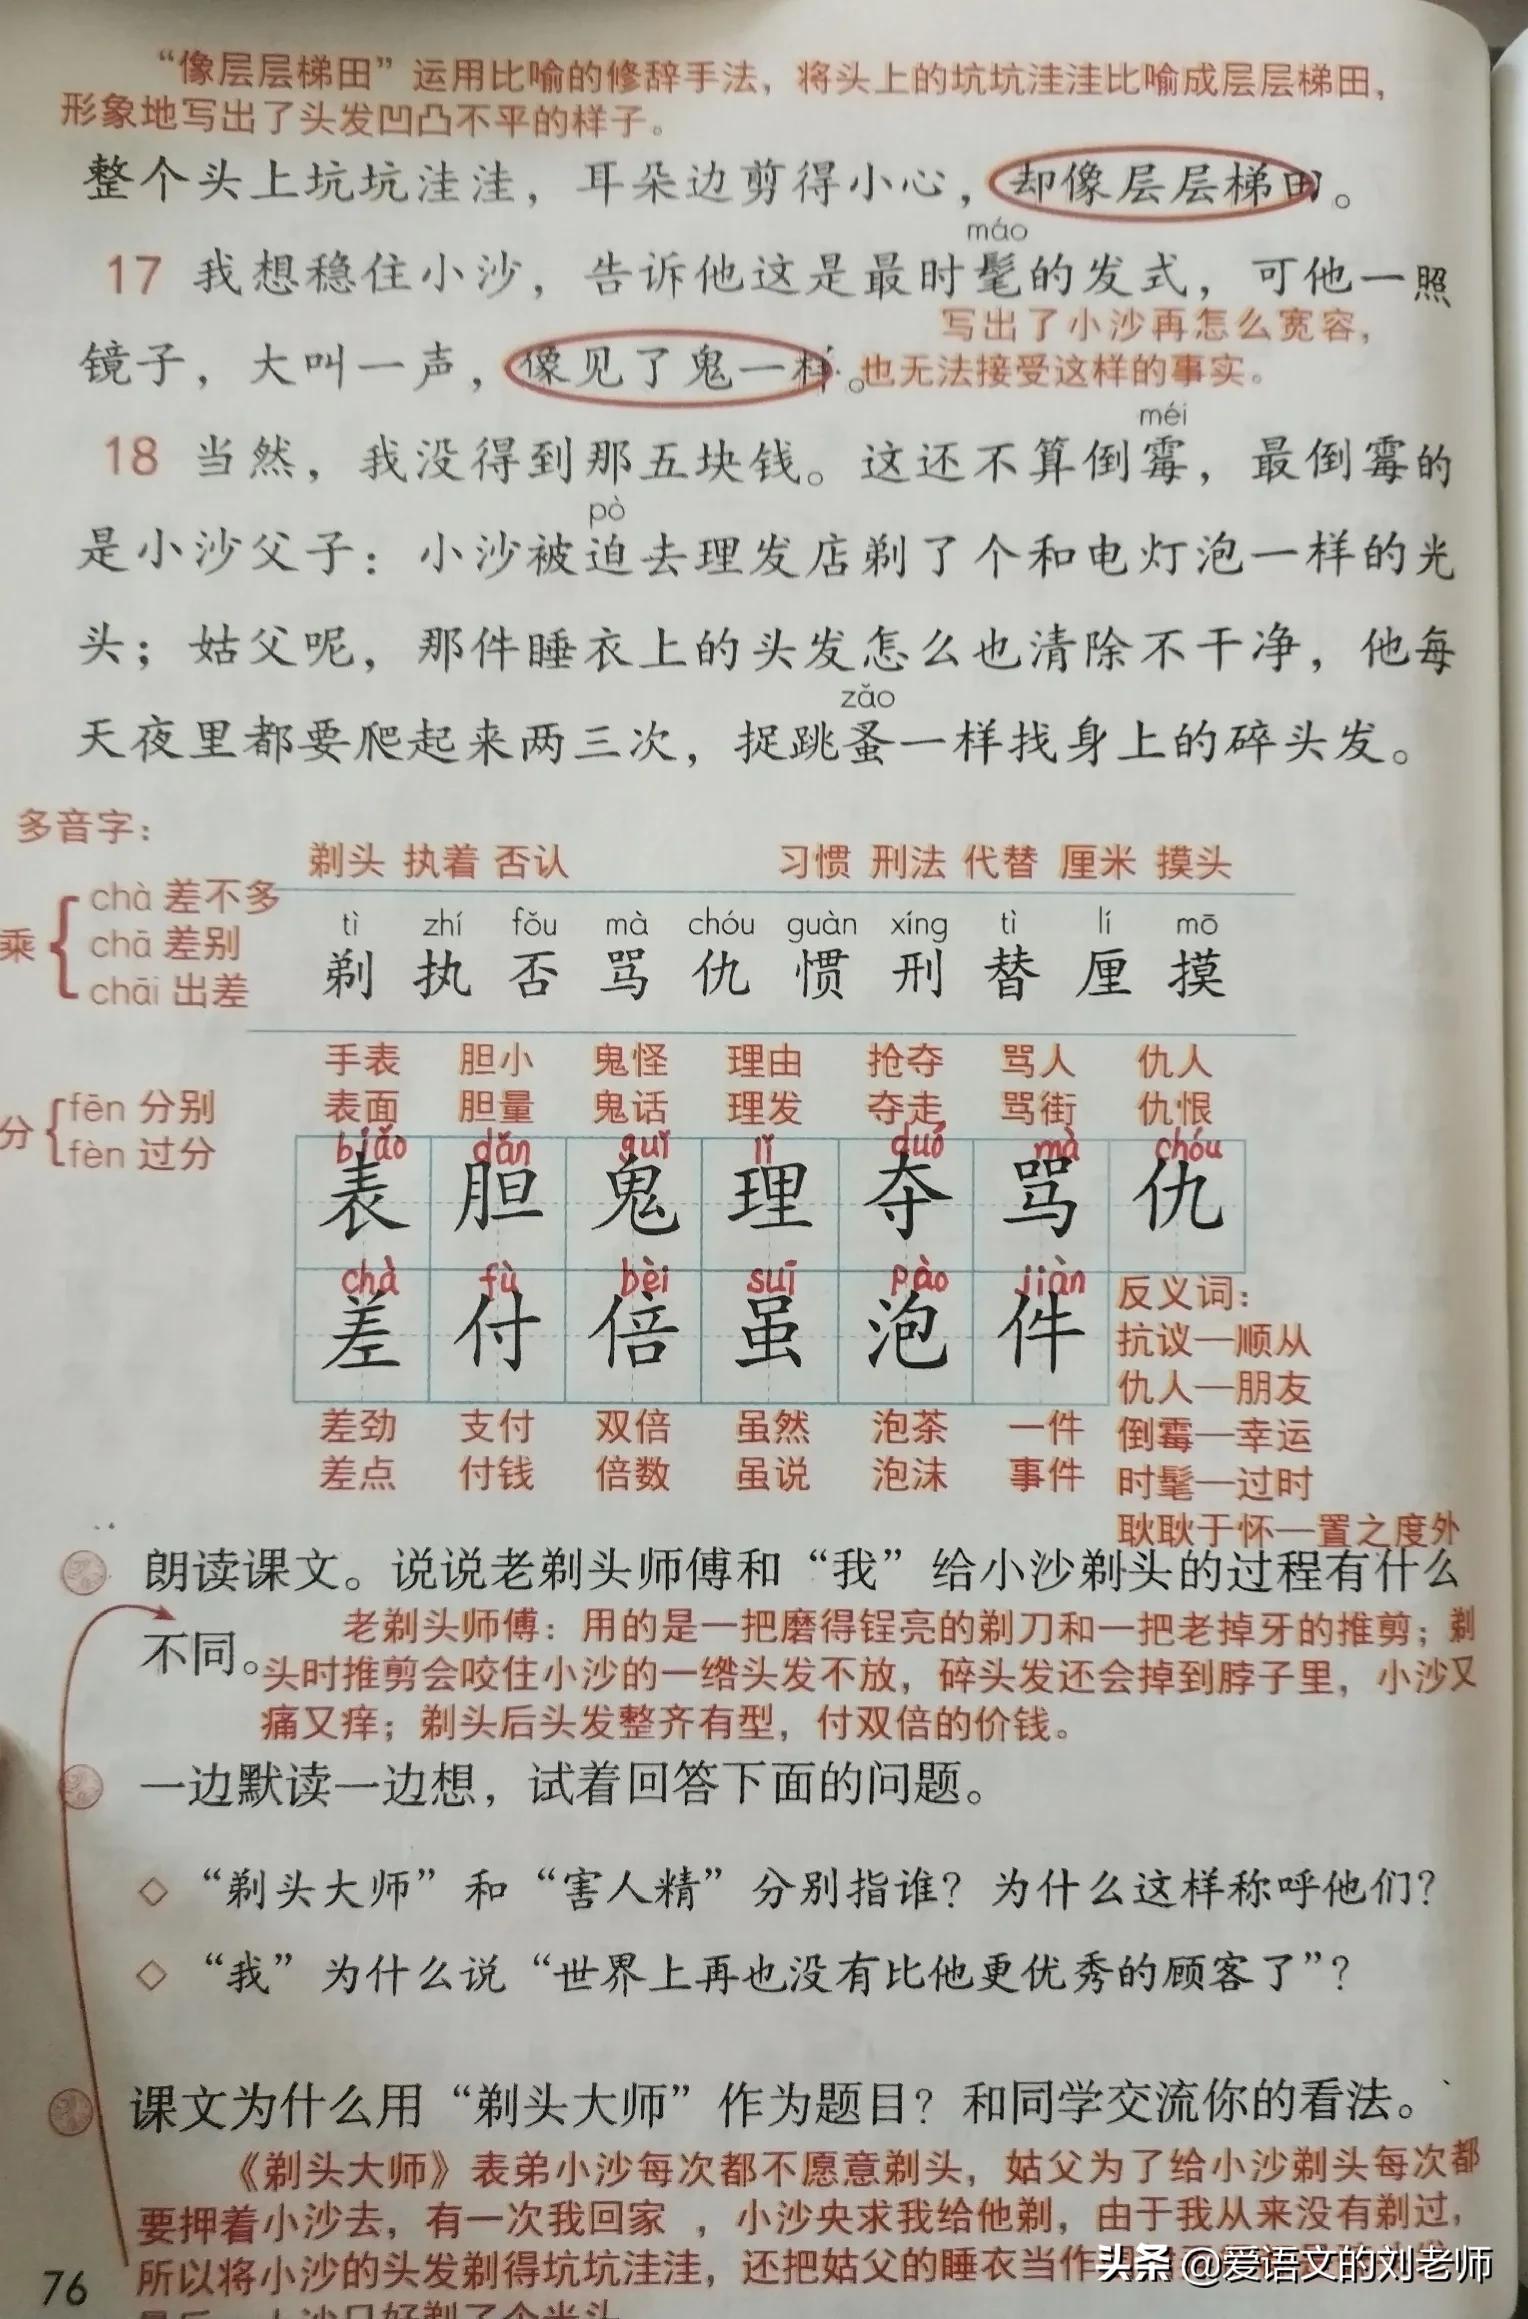 “像层层梯田”运用比喻的修辞手法，将头上的坑坑洼洼比喻成层层梯田，
形象地写出了头发凹凸不平的样子。
整个头上坑坑洼洼，耳朵边剪得小心，却像层层梯田。
máo
17 我想稳住小沙，告诉他这是最时髦的发式，可他一照
写出了小沙再怎么宽容，
镜子，大叫一声，像见了鬼一样。
也无法接受这样的事实。
méi
18 当然，我没得到那五块钱。这还不算倒霉，最倒霉的
pò
是小沙父子：小沙被迫去理发店剃了个和电灯泡一样的光
头；姑父呢，那件睡衣上的头发怎么也清除不干净，他每
zǎo
天夜里都要爬起来两三次，捉跳蚤一样找身上的碎头发。
多音字：
乘
chà 差不多
chā 差别
chāi 出差
分
fēn 分别
fèn 过分
剃头 执着 否认 习惯 刑法 代替 厘米 摸头
tì zhí fǒu mà chóu guàn xíng tì lí mō
剃 执 否 骂 仇 惯 刑 替 厘 摸
手表 胆小 鬼怪 理由 抢夺 骂人 仇人
表面 胆量 鬼话 理发 夺走 骂街 仇恨
biǎo dǎn guǐ lǐ duó mà chóu
表 胆 鬼 理 夺 骂 仇
chà fù bèi suī pào jiàn
差 付 倍 虽 泡 件
差劲 支付 双倍 虽然 泡茶 一件
差点 付钱 倍数 虽说 泡沫 事件
反义词：
抗议—顺从
仇人—朋友
倒霉—幸运
时髦—过时
耿耿于怀—置之度外
朗读课文。说说老剃头师傅和“我”给小沙剃头的过程有什么
不同。
老剃头师傅：用的是一把磨得锃亮的剃刀和一把老掉牙的推剪；剃
头时推剪会咬住小沙的一绺头发不放，碎头发还会掉到脖子里，小沙又
痛又痒；剃头后头发整齐有型，付双倍的价钱。
一边默读一边想，试着回答下面的问题。
◇ “剃头大师”和“害人精”分别指谁？为什么这样称呼他们？
◇ “我”为什么说“世界上再也没有比他更优秀的顾客了”？
课文为什么用“剃头大师”作为题目？和同学交流你的看法。
《剃头大师》表弟小沙每次都不愿意剃头，姑父为了给小沙剃头每次都
要押着小沙去，有一次我回家 ，小沙央求我给他剃，由于我从来没有剃过，
所以将小沙的头发剃得坑坑洼洼，还把姑父的睡衣当作
76
头条 @爱语文的刘老师